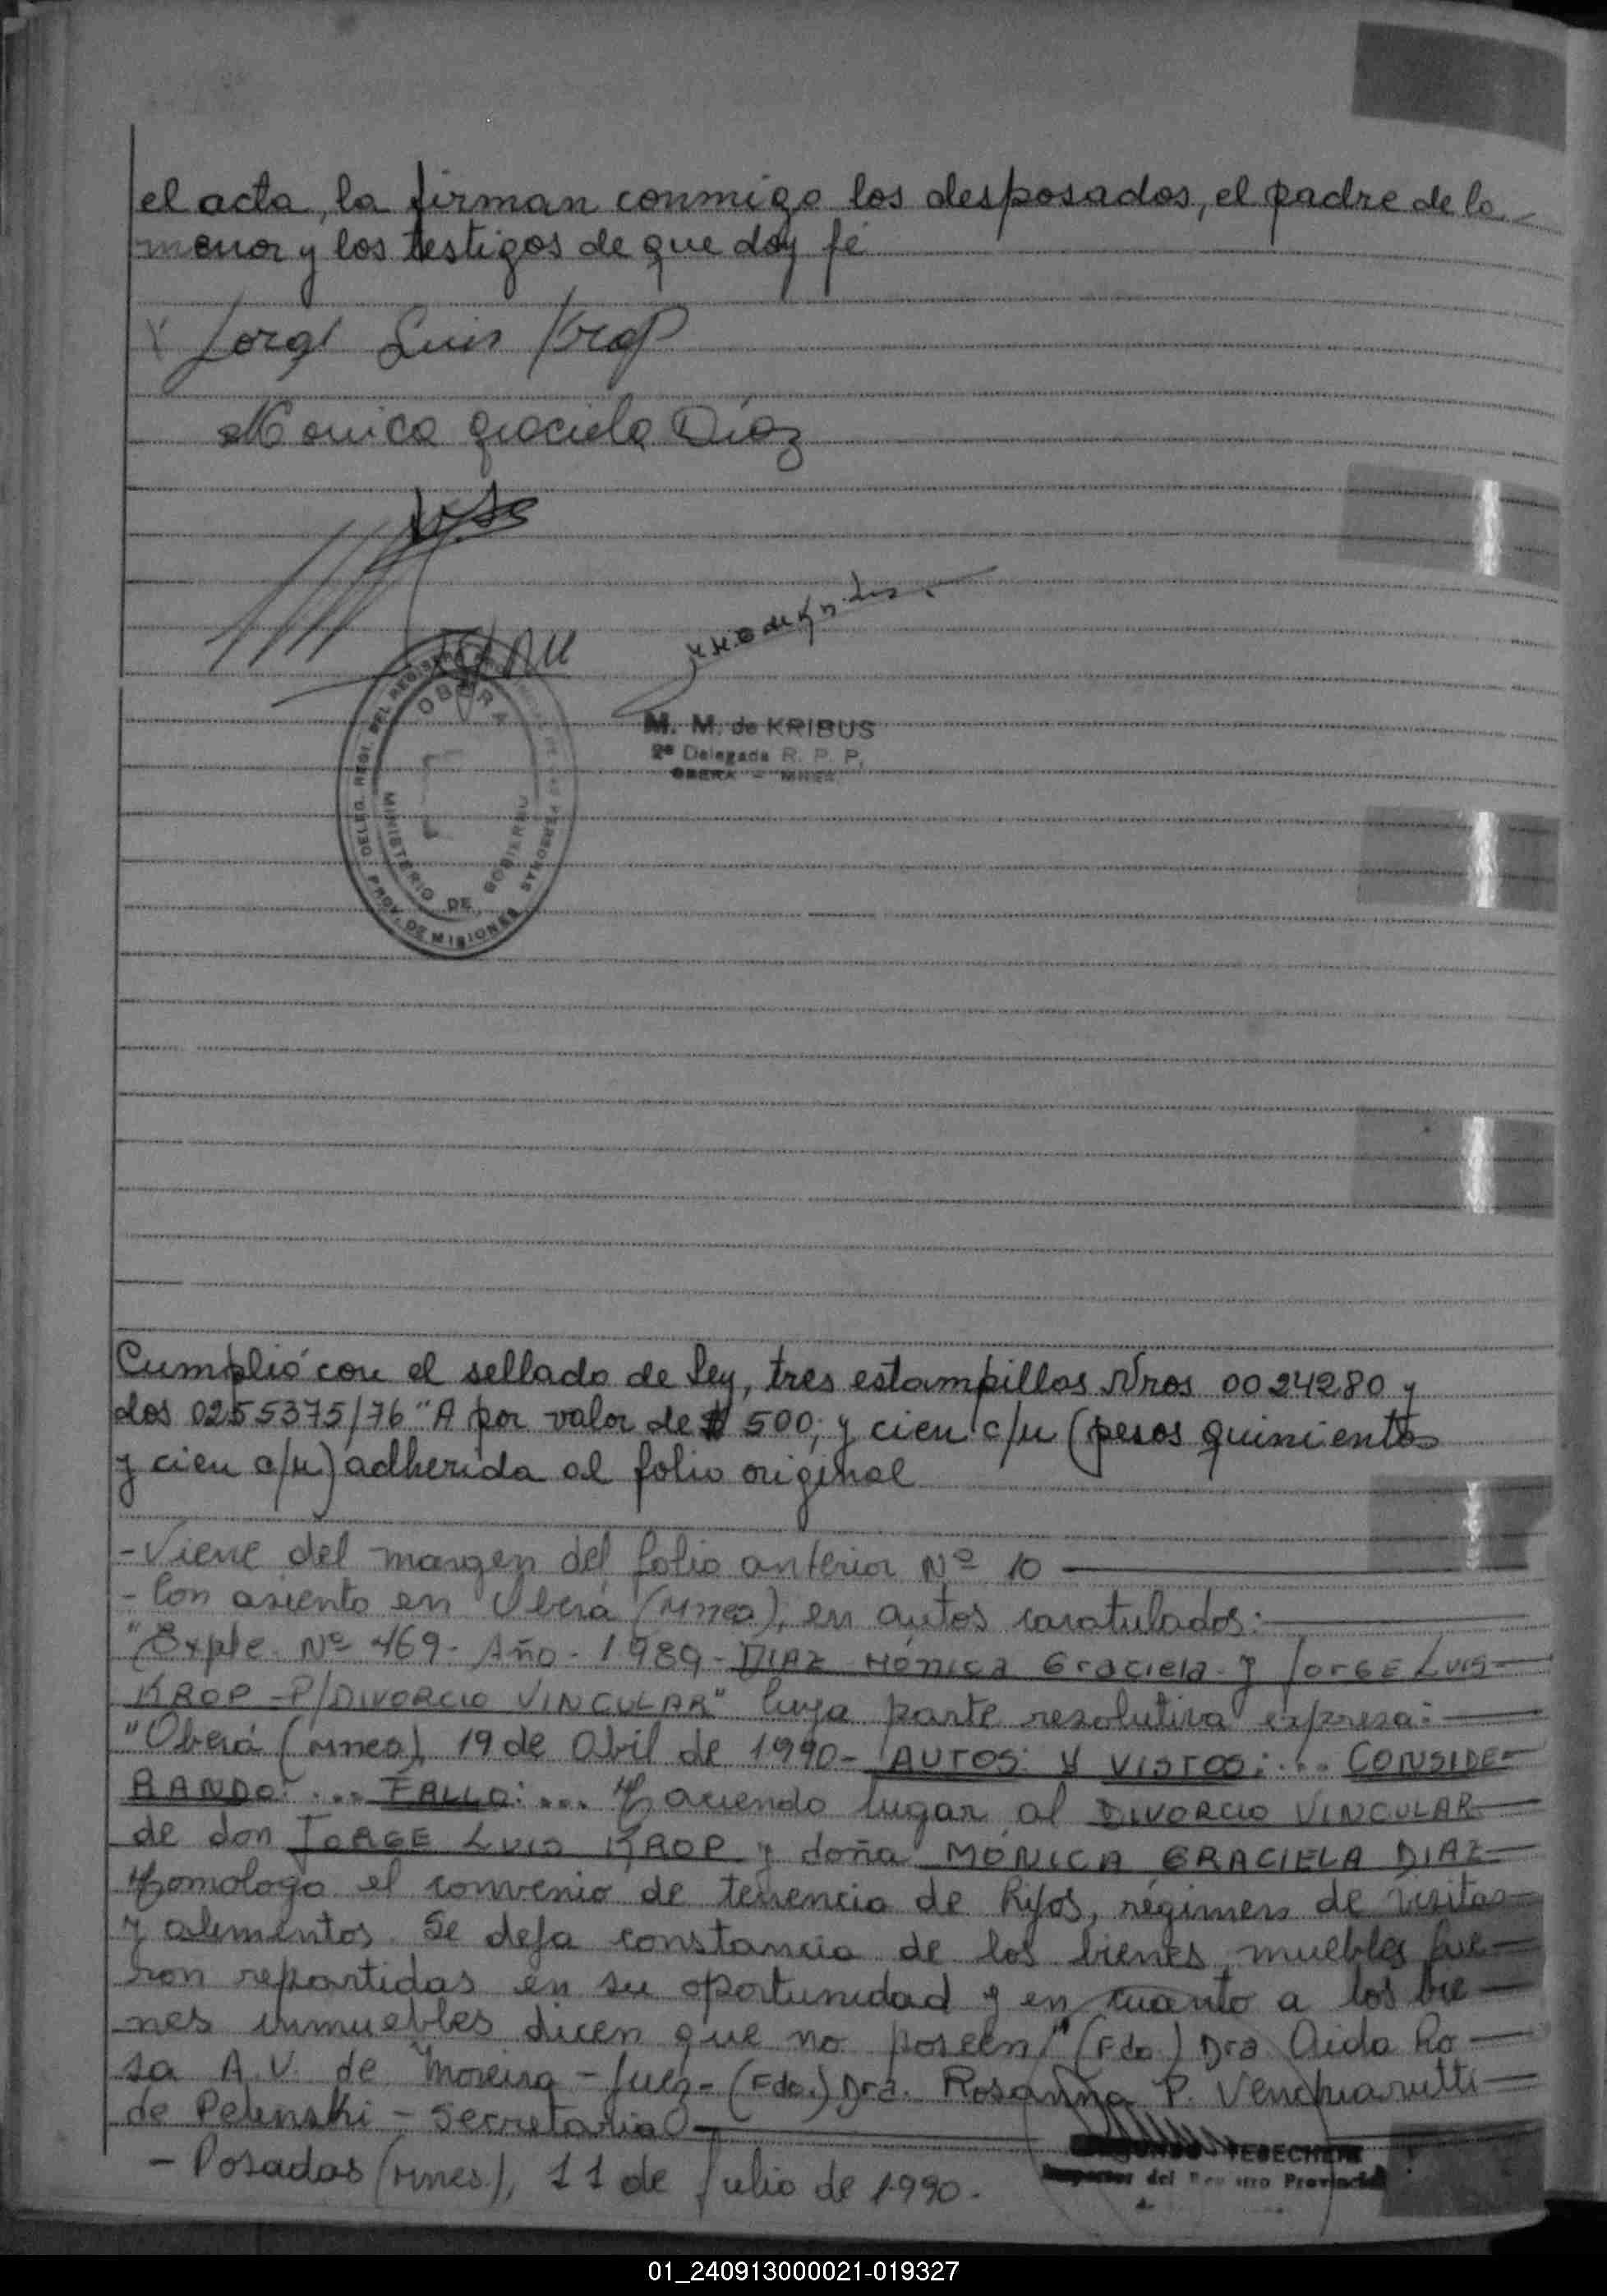 el acta, la firman conmigo los desposados, el padre de la
menor y los testigos de que doy fé
Jorge Luis Krop
Monica Graciela Díaz
M. M. de KRIBUS
2ª Delegada R. P. P.
OBERA - MNES
DELEG. REGI. DEL REGISTRO PROVINCIAL DE LAS PERSONAS
OBERA
MINISTERIO DE GOBIERNO
PROV. DE MISIONES
Cumplió con el sellado de ley, tres estampillas Nros 0024280 y
dos 0255375/76 "A por valor de $ 500, y cien c/u (pesos quinientos
y cien c/u) adherida al folio original
- Viene del margen del folio anterior Nº 10
- Con asiento en Oberá (Mnes), en autos caratulados:
"Expte. Nº 469- Año - 1989 - DIAZ MÓNICA Graciela y JORGE LUIS
KROP - P/DIVORCIO VINCULAR" Cuya parte resolutiva expresa:
"Oberá (Mnes), 19 de Abil de 1990- AUTOS Y VISTOS:... CONSIDE-
RANDO:... FALLO:... Haciendo lugar al DIVORCIO VINCULAR
de don JORGE LUIS KROP y doña MÓNICA GRACIELA DIAZ
Homologo el convenio de tenencia de hijos, régimen de visitas
y alimentos. Se deja constancia de los bienes muebles fue-
ron repartidas en su oportunidad y en cuanto a los bie-
nes inmuebles dicen que no poseen" (Fdo.) Dra Aida Ro-
sa A.V. de Moreira - Juez - (Fdo.) Dra. Rosanna P. Venchiarutti
de Pelinski - Secretaria
TEBECHERI
Inspector del Registro Provincial
- Posadas (Mnes), 11 de Julio de 1990.
01_240913000021-019327